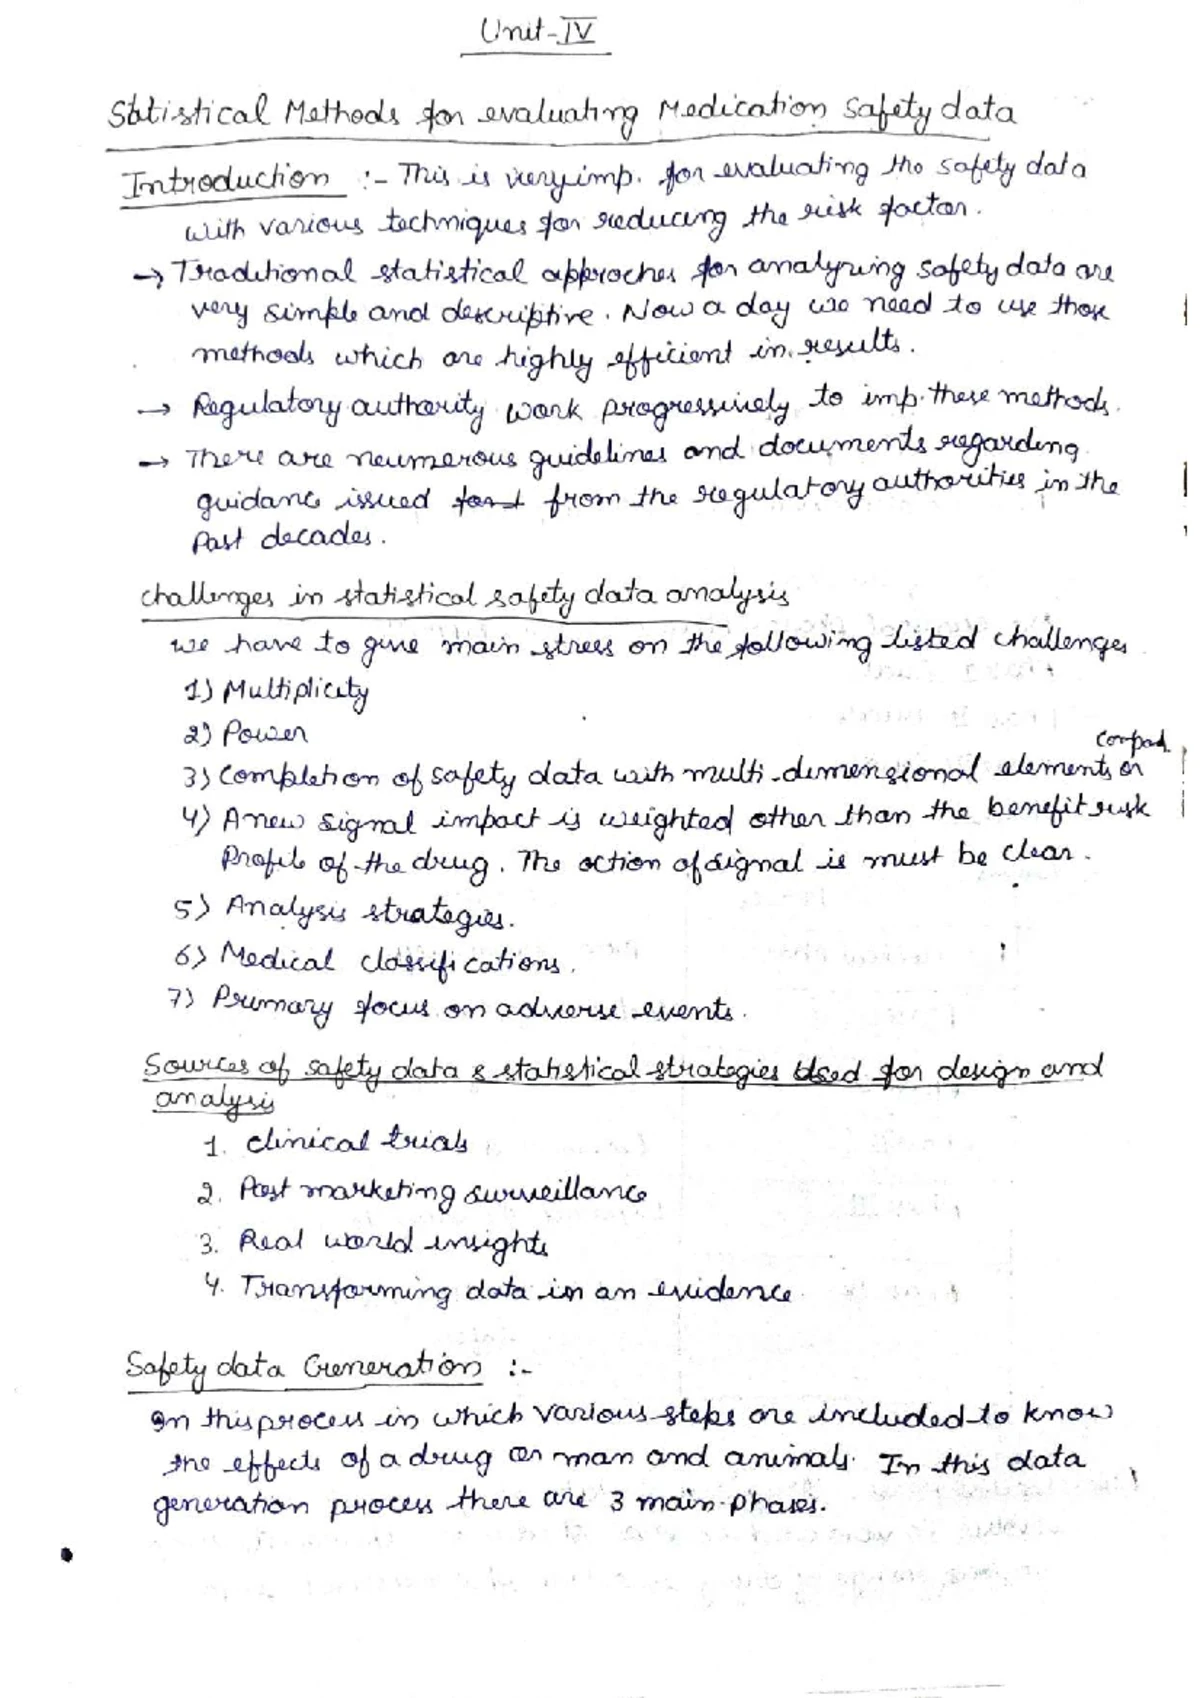 Unit-IV
Statistical Methods for evaluating Medication safety data
Introduction :- This is very imp. for evaluating the safety data
with various techniques for reducing the risk factor.
→ Traditional statistical approches for analyzing safety data are
very simple and descriptive. Now a day we need to use those
methods which are highly efficient in results.
→ Regulatory authority work progressively to imp. these methods.
→ There are neumerous guidelines and documents regarding
guidance issued from the regulatory authorities in the
Past decades.
challenges in statistical safety data analysis
we have to give main stress on the following listed challenges
1) Multiplicity
2) Power
3) Completion of safety data with multi-dimensional elements or
4) A new signal impact is weighted other than the benefit risk
Profile of the drug. The action of signal is must be clear.
5) Analysis strategies.
6) Medical classifications.
7) Primary focus on adverse events.
Sources of safety data & statistical strategies Used for design and
analysis
1. clinical trials
2. Post marketing surveillance
3. Real world insights
4. Transforming data in an evidence
Safety data Generation :-
In this process in which various steps are included to know
the effects of a drug on man and animals. In this data
generation process there are 3 main phases.